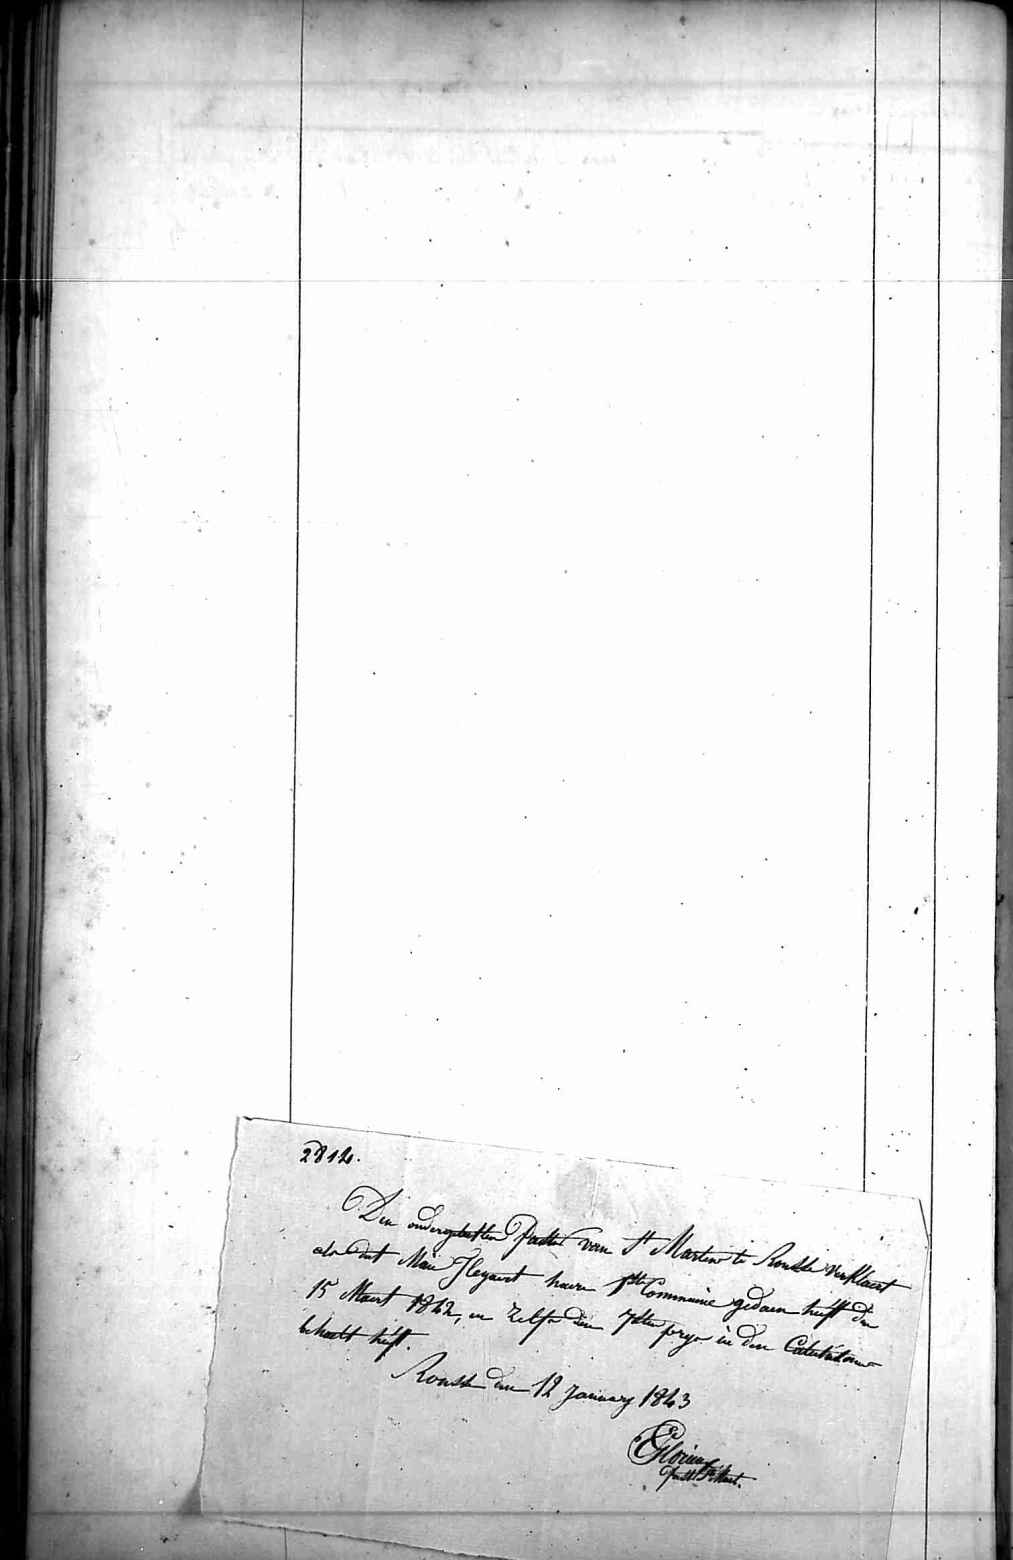 2814.
Den ondergetekenden Pastor van St Martens te Ronsse verklaert
als dat Marie Heyaert haere 1ste Communie gedaen heeft den
15 Maert 1842, en zelfs den 7sten prys in den Catechismus
behaelt heeft.
Ronsse den 12 January 1843